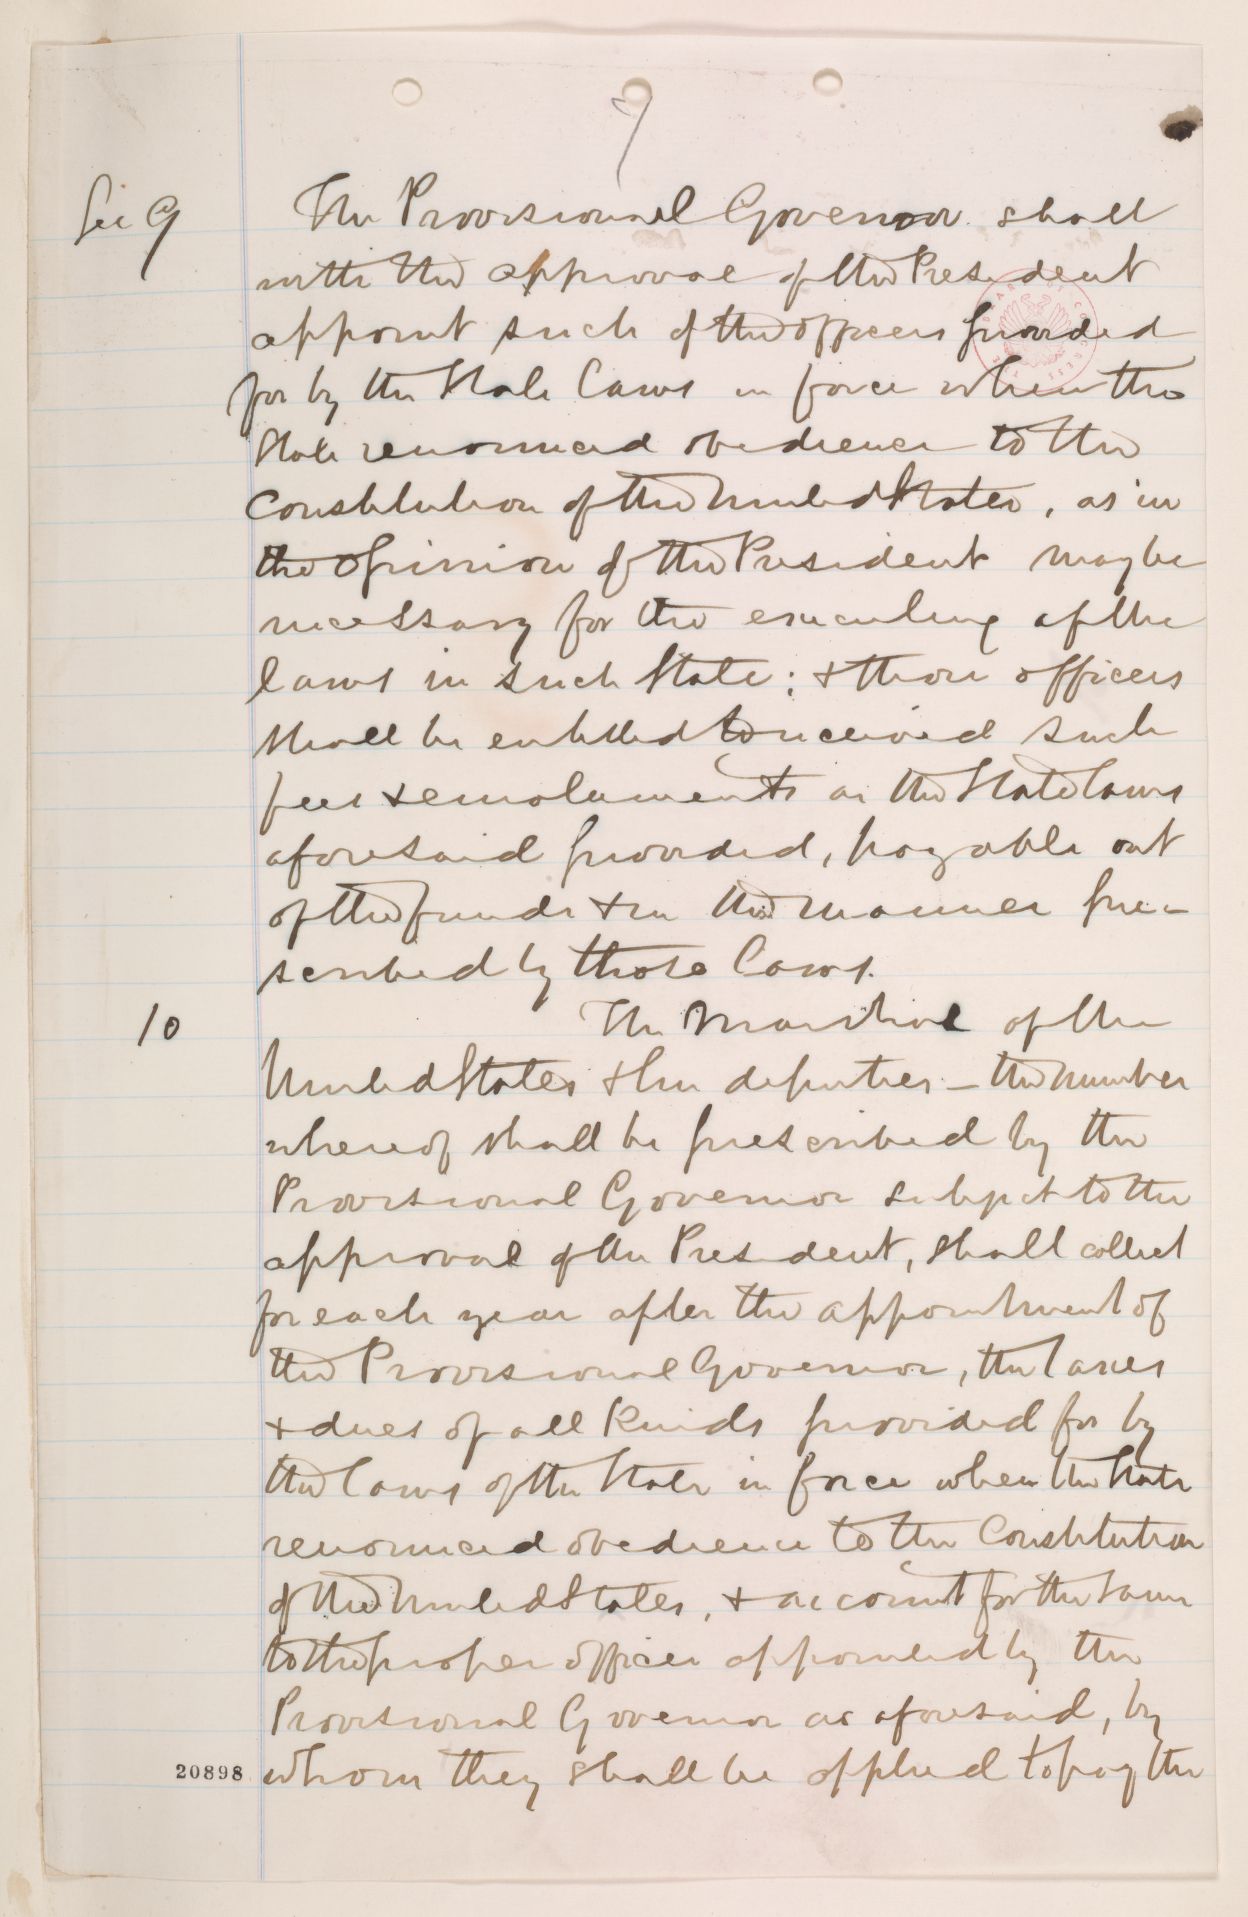 7
Sec 9 The Provisional Governor shall
with the approval of the President
appoint such of the officers provided
for by the State Laws in force when the
State renounced obedience to the
Constitution of the United States, as in
the opinion of the President may be
necessary for the executing of the
laws in such State; & those officers
shall be entitled to received such
fees & emoluments as the State laws
aforesaid provided, payable out
of the funds & in the manner pre-
scribed by those Laws.
10 The Marshal of the
United States & his deputies - the number
whereof shall be prescribed by the
Provisional Governor subject to the
approval of the President, shall collect
for each year after the appointment of
the Provisional Governor, the taxes
& dues of all kinds provided for by
the laws of the State in force when the State
renounced obedience to the Constitution
of the United States, & account for the same
to the proper officer appointed by the
Provisional Governor as aforesaid, by
20898 whom they shall be applied to pay the